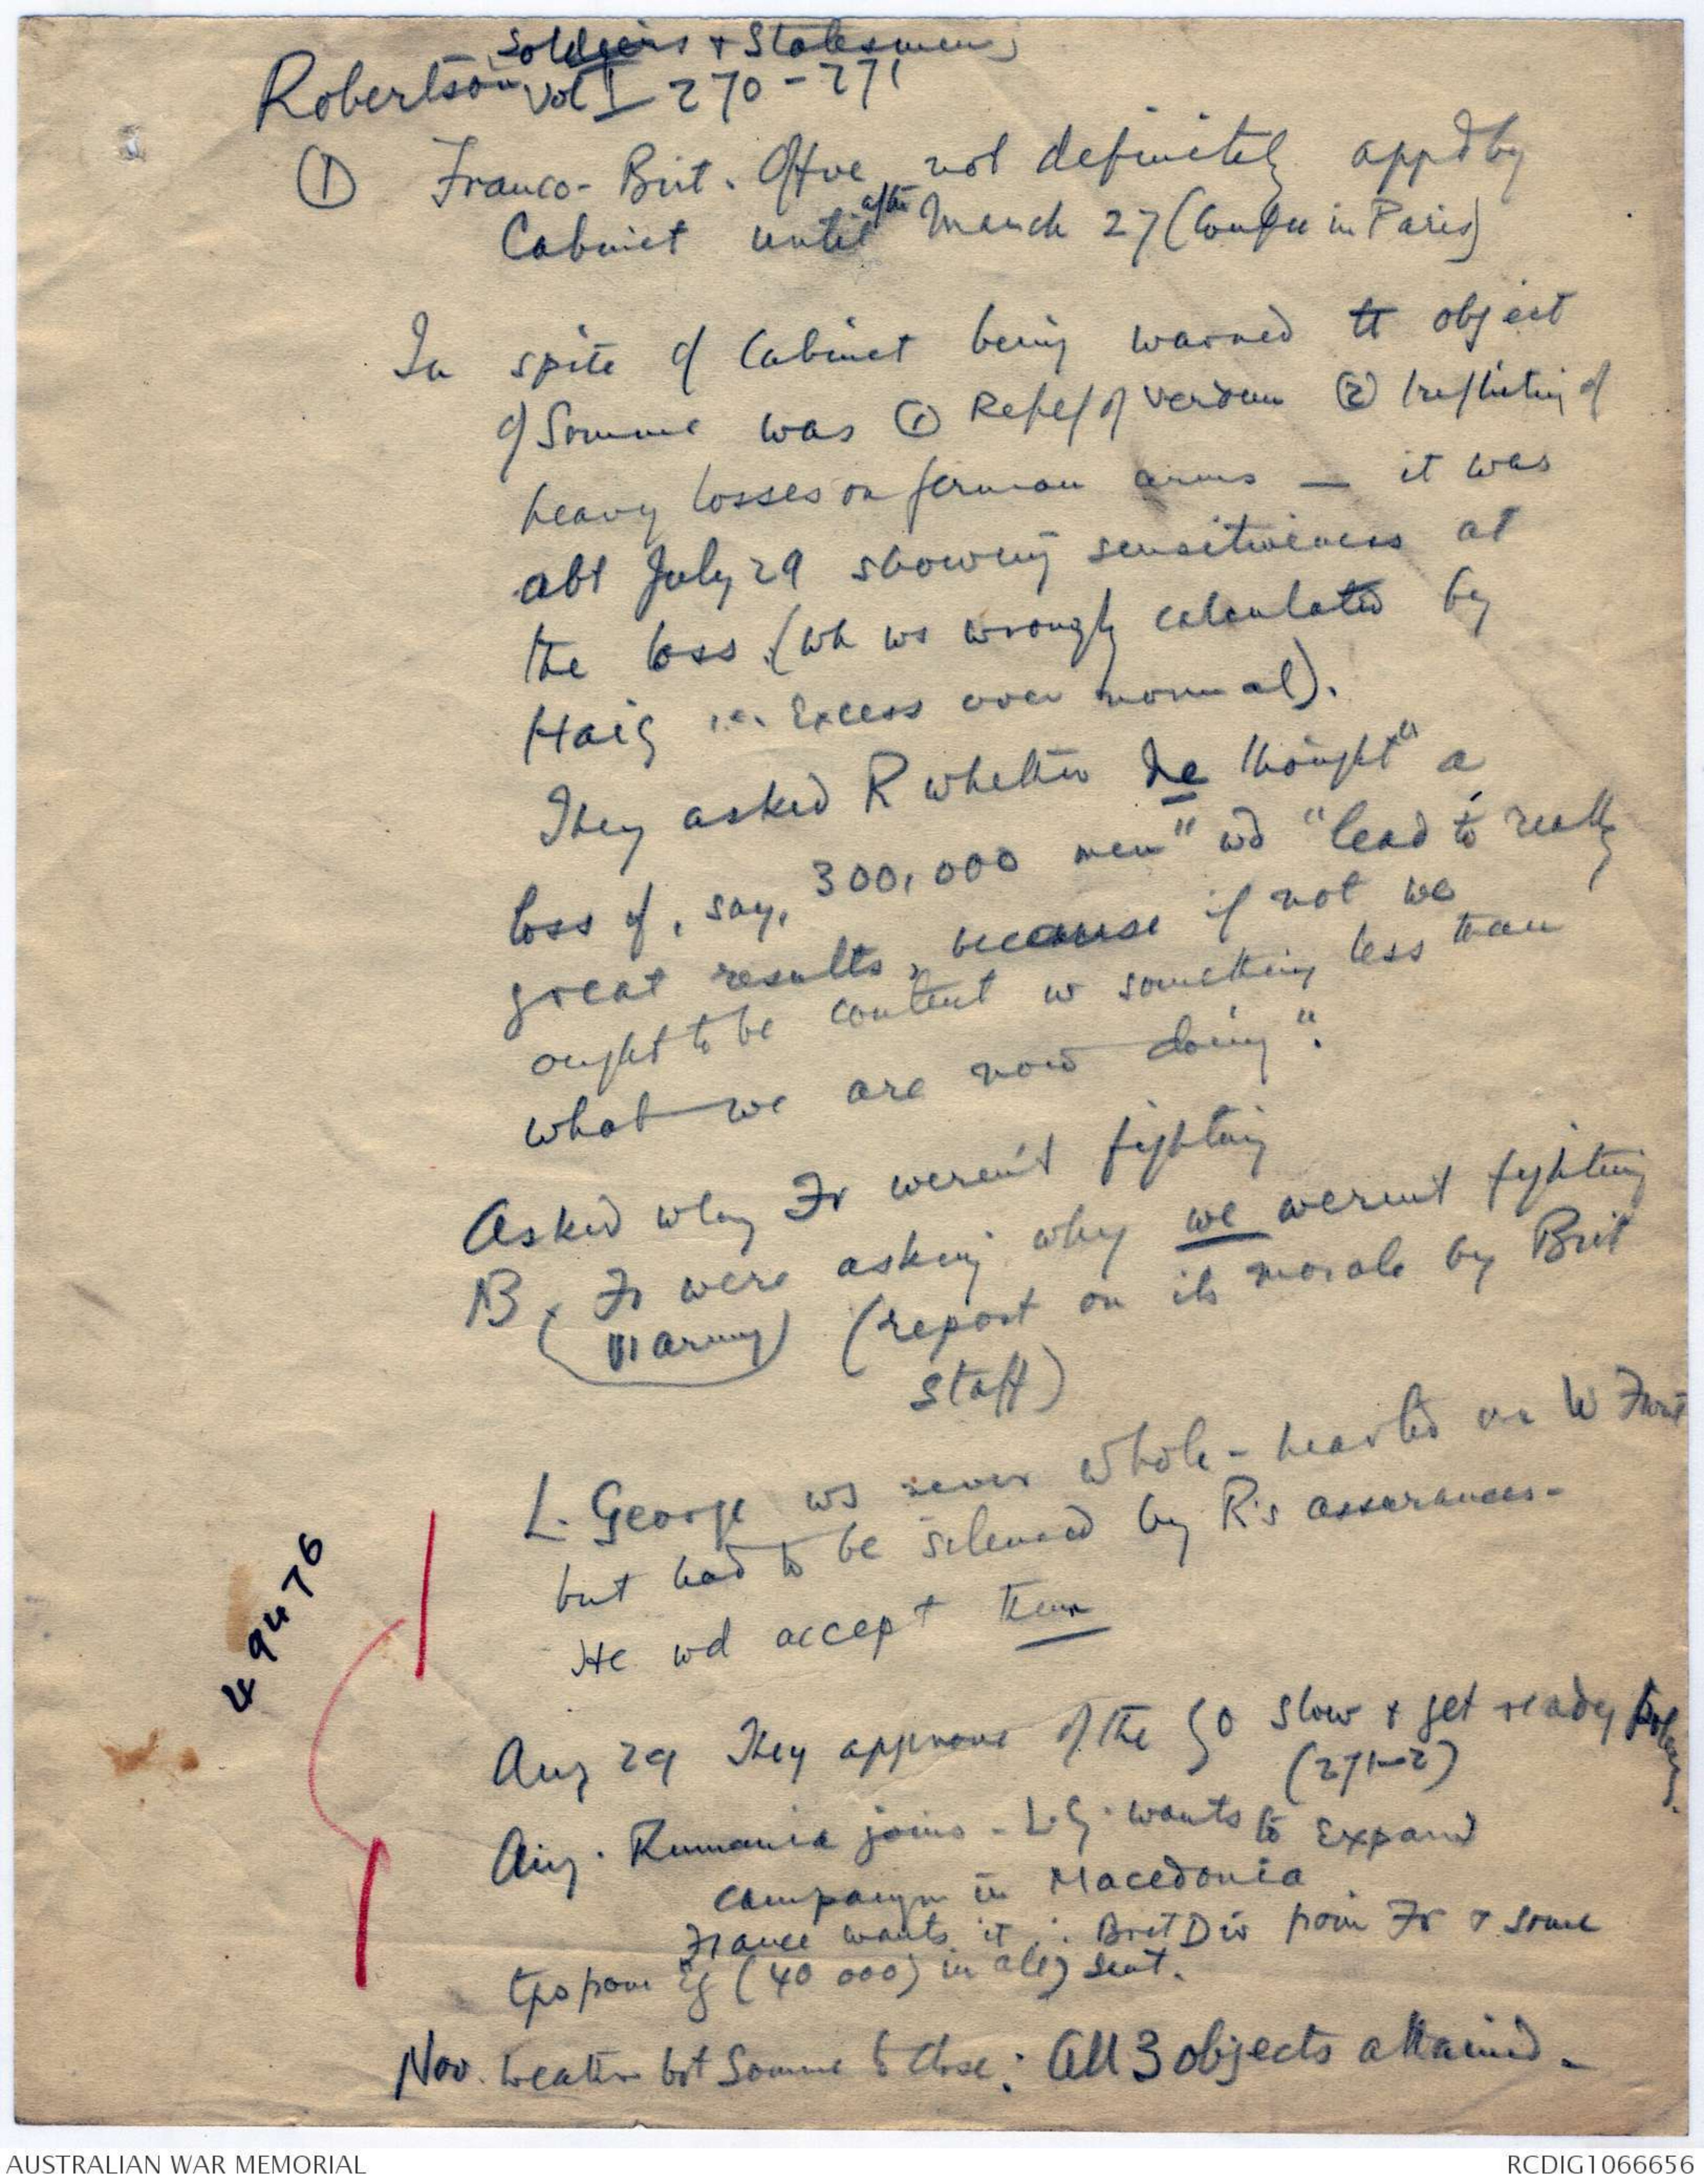 Soldiers + Statesmen,
Robertson Vol I 270-271
① Franco-Brit. Offve not definitely appd by
Cabinet until after March 27 (Confce in Paris)
In spite of Cabinet being warned tt object
of Somme was ① Relief of Verdun ② Inflicting of
heavy losses on German arms — it was
abt July 29 showing sensitiveness at
the loss (wh ws wrongly calculated by
Haig i.e. excess over normal).
They asked R whether he thought "a
loss of, say, 300,000 men" wd "lead to really
great results, because if not we
ought to be content w something less than
what we are now doing".
Asked why Fr weren't fighting
B. Fr were asking why we werent fighting
(III army) (report on its morale by Brit
Staff)
L. George ws never whole-hearted on W Front
but had to be silenced by R's assurances-
He wd accept them
49476
Aug 29 They approve of the go slow & get ready policy.
(271-2)
Aug. Rumania joins - L.G. wants to expand
campaign in Macedonia
France wants it ∴ Brit Div from Fr & some
tps from Eg (40 000) in all) sent.
Nov. Weather bt Somme to close: All 3 objects attained -
AUSTRALIAN WAR MEMORIAL
RCDIG1066656